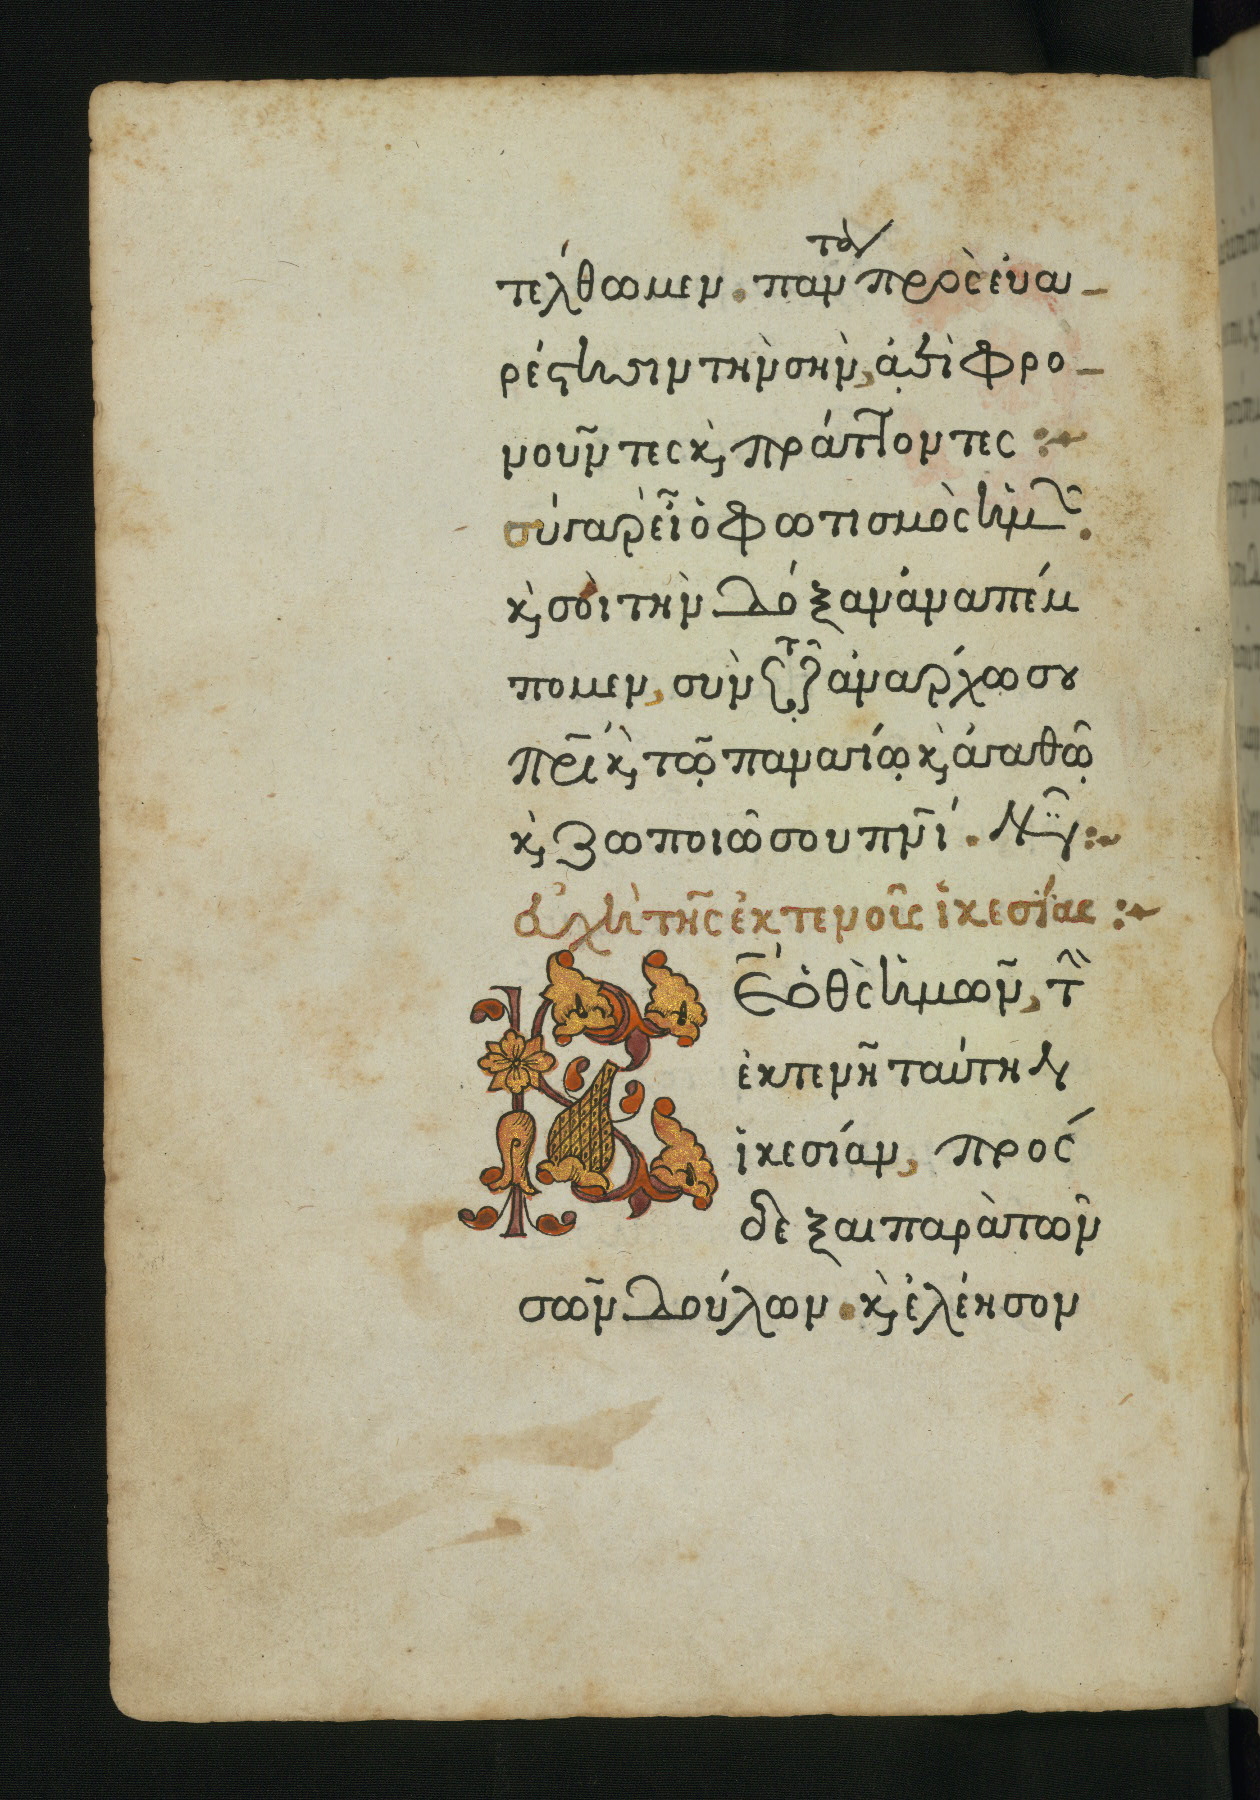 τέλθωμεν. πάντα πρὸς εὐα-
ρέστησιν τὴν σὴν, ἀεὶ φρο-
νοῦντες κ, πράττοντες :~
σύ γαρ εἶ ὁ φωτισμὸς ἡμῶν.
κ, σοὶ τὴν δόξαν ἀναπέμ
πομεν, σὺν τῷ ἀνάρχω σου
πρὶ κ, τῶ παναγίω κ, ἀγαθῶ
κ, ζωποιῶ σου πνι. Νῦν :~
ἀχὴ τῆς ἐκτενοῦς ἱκεσίας :~
Κ Ε ὁ θς ἡμῶν, τὴν
ἐκτενῆ ταύτην
ἱκεσίαν, πρόσ
δεξαι παρὰ τῶν
σῶν δούλων. κ, ἐλέησον